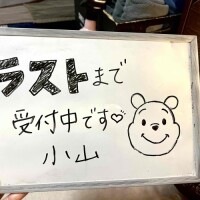 ラストまで
受付中です♡
小山